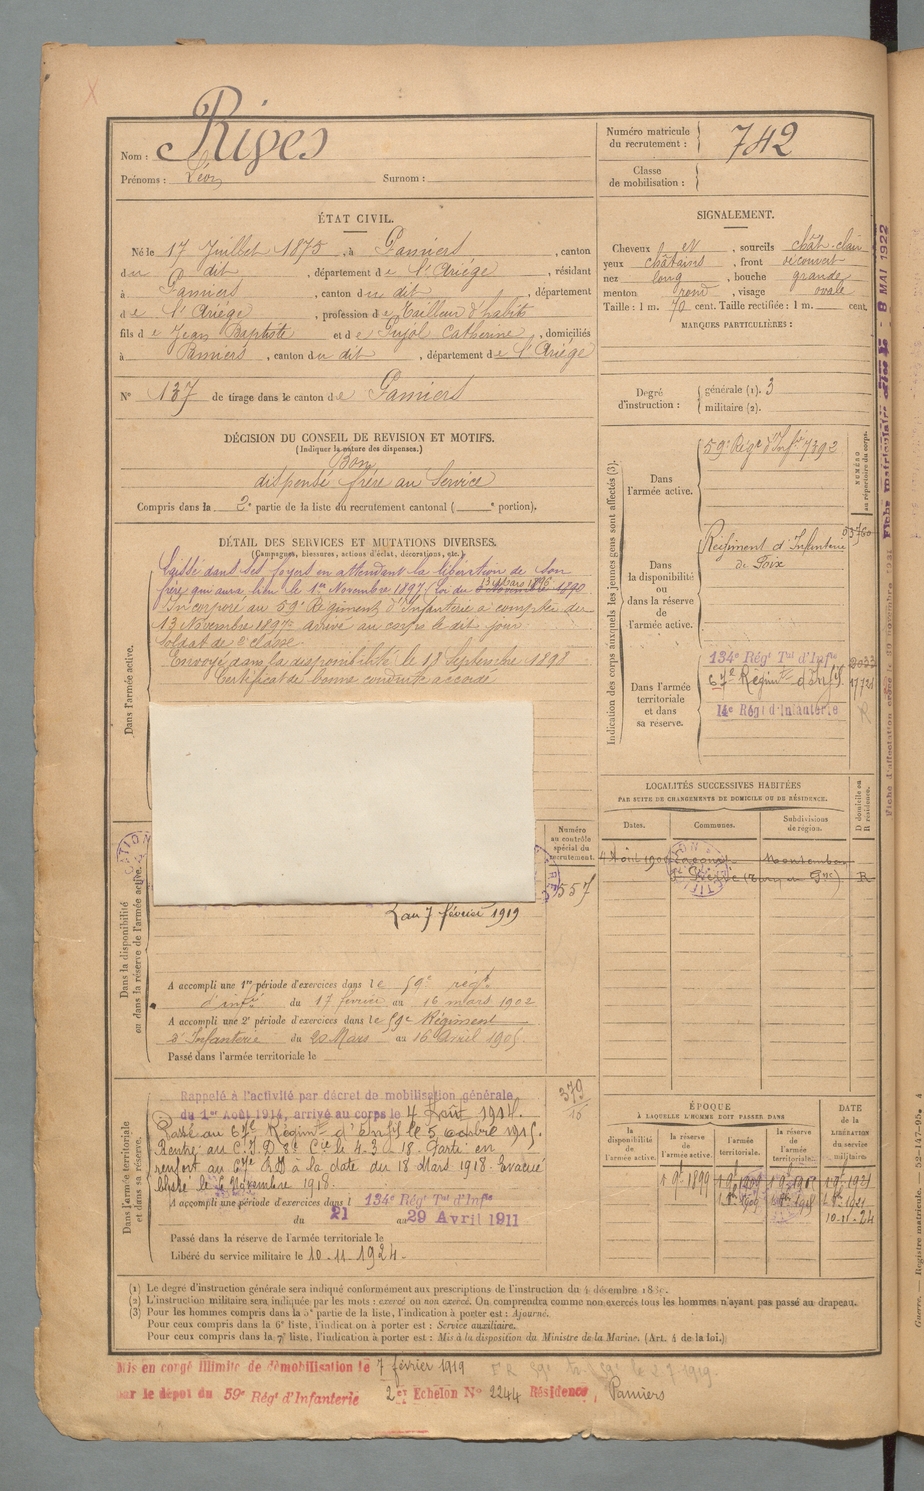 Rives
Nom :
Prénoms : Léon Surnom :
Numéro matricule du recrutement : 742
Classe de mobilisation :
ÉTAT CIVIL.
Né le 17 Juillet 1875, à Pamiers, canton
du dit, département de l'Ariège, résidant
à Pamiers, canton du dit, département
de l'Ariège, profession de Tailleur d'habits
fils de Jean Baptiste et de Pujol Catherine, domiciliés
à Pamiers, canton du dit, département de l'Ariège
N° 137 de tirage dans le canton de Pamiers
SIGNALEMENT.
Cheveux et, sourcils chât. clair
yeux châtains, front découvert
nez long, bouche grande
menton rond, visage ovale
Taille : 1 m. 70 cent. Taille rectifiée : 1 m. cent.
MARQUES PARTICULIÈRES :
Degré d'instruction : générale (1). 3
militaire (2).
DÉCISION DU CONSEIL DE REVISION ET MOTIFS.
(Indiquer la nature des dispenses.)
Bon
dispensé frère au Service
Compris dans la 2e partie de la liste du recrutement cantonal ( e portion).
DÉTAIL DES SERVICES ET MUTATIONS DIVERSES.
(Campagnes, blessures, actions d'éclat, décorations, etc.)
Dans l'armée active.
Laissé dans ses foyers en attendant la libération de son
frère qui aura lieu le 1er Novembre 1897 (Loi du
13 Mars 1896
Incorporé au 59e Régiment d'Infanterie à compter du
13 Novembre 1897 arrivé au corps le dit jour
soldat de 2e classe
Envoyé dans la disponibilité le 18 Septembre 1898
Certificat de bonne conduite accordé
Indication des corps auxquels les jeunes gens sont affectés (3).
NUMÉRO au répertoire du corps.
Dans l'armée active.
59e Régt d'Infie 7392
Dans la disponibilité ou dans la réserve de l'armée active.
Régiment d'Infanterie
de Foix
Dans l'armée territoriale et dans sa réserve.
134e Régt Tal d'Infie
67e Régimt d'Inf.
14e Régt d'Infanterie
R
LOCALITÉS SUCCESSIVES HABITÉES
PAR SUITE DE CHANGEMENTS DE DOMICILE OU DE RÉSIDENCE.
Dates.
Communes.
Subdivisions de région.
D domicile ou R résidence.
Montauban
R
Dans la disponibilité ou dans la réserve de l'armée active.
Numéro au contrôle spécial du recrutement.
au 7 février 1919
A accompli une 1re période d'exercices dans le 59e régt
d'infie du 17 février au 16 mars 1902
A accompli une 2e période d'exercices dans le 59e Régiment
d'Infanterie du 20 Mars au 16 Avril 1905
Passé dans l'armée territoriale le
Dans l'armée territoriale et dans sa réserve.
379
10
Rappelé à l'activité par décret de mobilisation générale
du 1er Août 1914, arrivé au corps le 4 Août 1914.
Passé au 67e Régimt d'Infie le 5 octobre 1915.
Rentré au C.I.D 8e Cie le 4.3.18. Parti en
renfort au 67e RI à la date du 18 Mars 1918. Evacué
blessé le 6 Novembre 1918.
A accompli une période d'exercices dans l 134e Régt Tal d'Infie
du 21 au 29 Avril 1911
Passé dans la réserve de l'armée territoriale le
Libéré du service militaire le 10.11.1924.
ÉPOQUE
À LAQUELLE L'HOMME DOIT PASSER DANS
la disponibilité de l'armée active.
la réserve de l'armée active.
l'armée territoriale.
la réserve de l'armée territoriale.
DATE de la LIBÉRATION du service militaire.
1 9e 1899
10-11-24
(1) Le degré d'instruction générale sera indiqué conformément aux prescriptions de l'instruction du 4 décembre
(2) L'instruction militaire sera indiquée par les mots : exercé ou non exercé. On comprendra comme non exercés tous les hommes n'ayant pas passé au drapeau.
(3) Pour les hommes compris dans la 5e partie de la liste, l'indication à porter est : Ajourné.
Pour ceux compris dans la 6e liste, l'indication à porter est : Service auxiliaire.
Pour ceux compris dans la 7e liste, l'indication à porter est : Mis à la disposition du Ministre de la Marine. (Art. 4 de la loi.)
Mis en congé illimité de démobilisation le 7 février 1919
par le dépôt du 59e Régt d'Infanterie 2er Echelon N° 2244 Résidence, Pamiers
8 MAI 1922